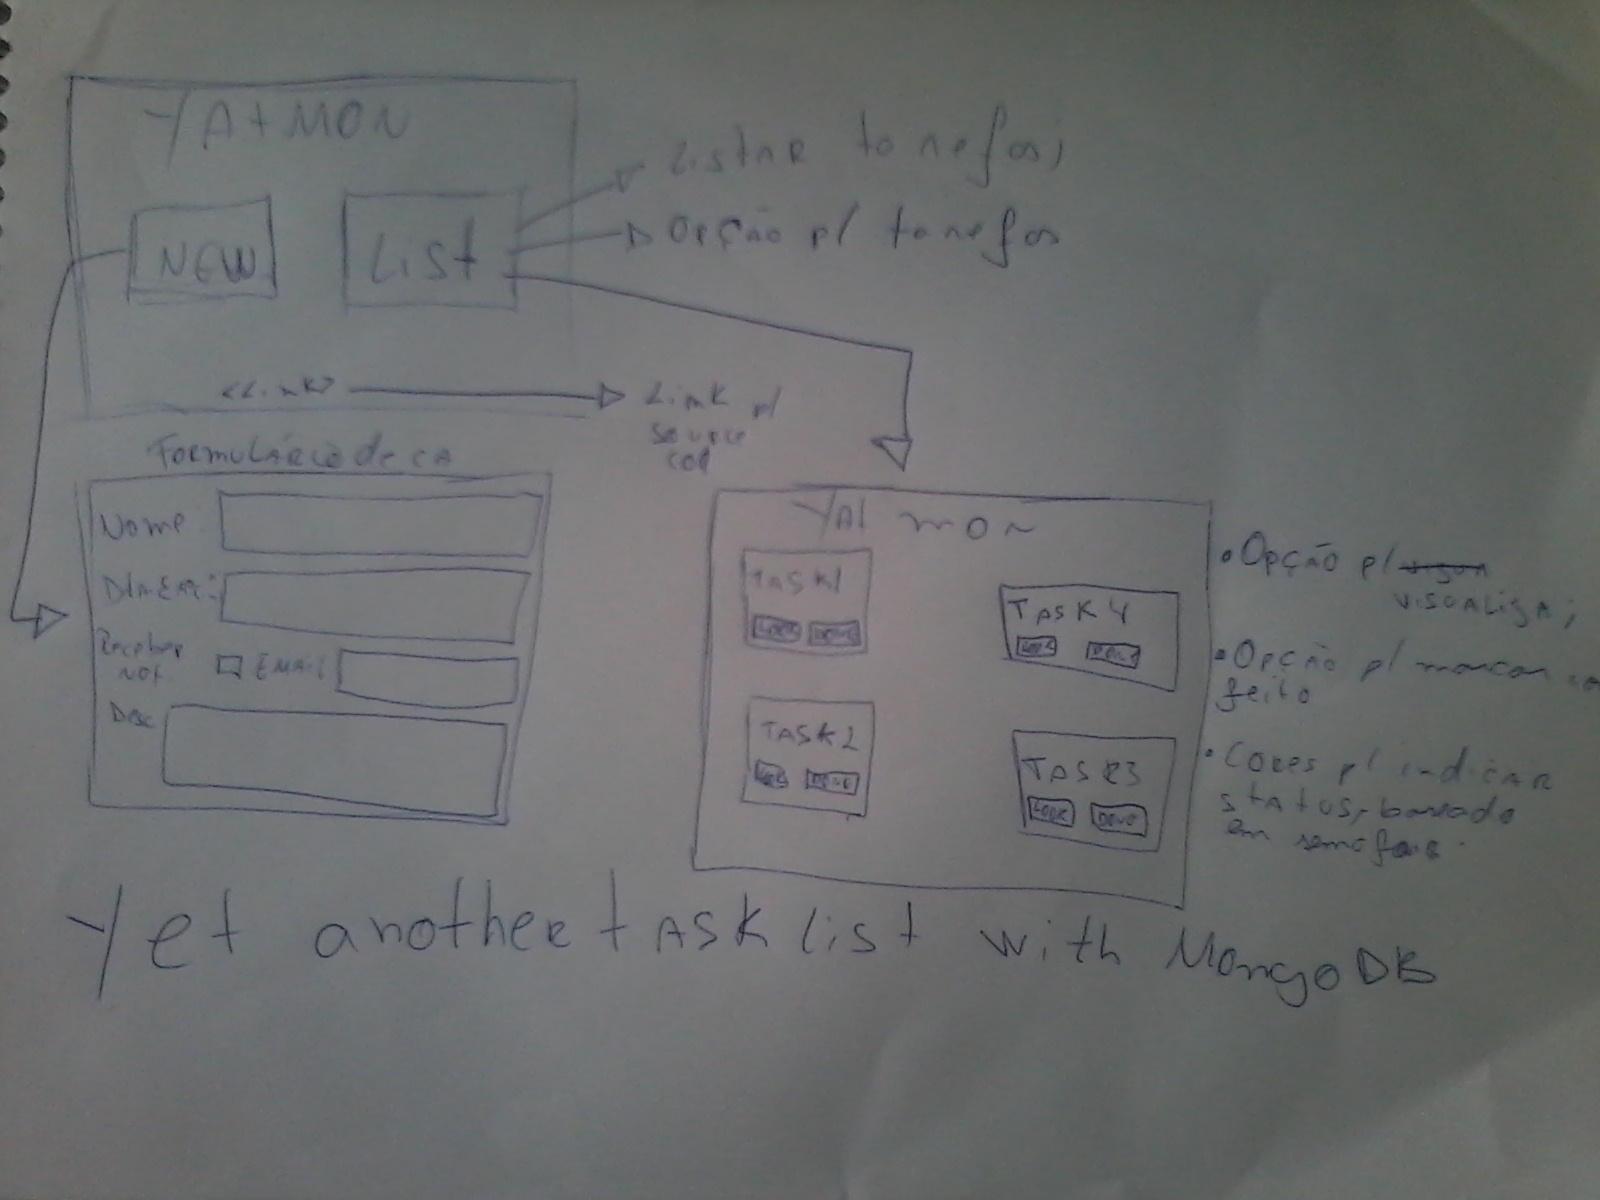 YAtMON
NEW
List
Listar tarefas;
Opção p/ tarefas
<Link>
Link p/
source
cod
Formulário de ca
Nome
Receber
not
EMAIL
Desc
YAt mon
TASK1
LOOK DONE
TASK 4
LOOK DONE
TASK2
LOOK DONE
TASK3
LOOK DONE
• Opção p/
visualiza;
• Opção p/ marcar co
feito
• Cores p/ indicar
status, baseado
em semáforo.
Yet another task list with MongoDB